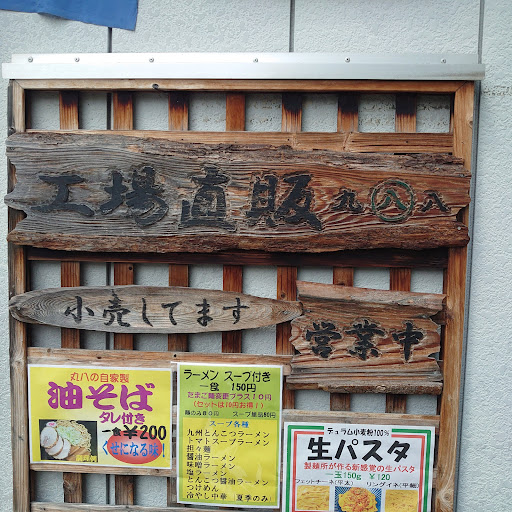 工場直販 丸八八
小売してます
営業中
丸八の自家製
油そば
タレ付き
一食 ¥200
くせになるな
ラーメン スープ付き
一食 150円
たまご麺変更プラス10円
(セットは70円お得!)
麺のみ80円 スープ単品80円
スープ各種
九州とんこつラーメン
トマトスープラーメン
担々麺
醤油ラーメン
味噌ラーメン
塩ラーメン
とんこつ醤油ラーメン
つけめん
冷やし中華 夏季のみ
デュラム小麦粉100%
生パスタ
製麺所が作る新感覚の生パスタ
一玉150g ¥120
フェットチーネ(平太) リングイネ(平細)